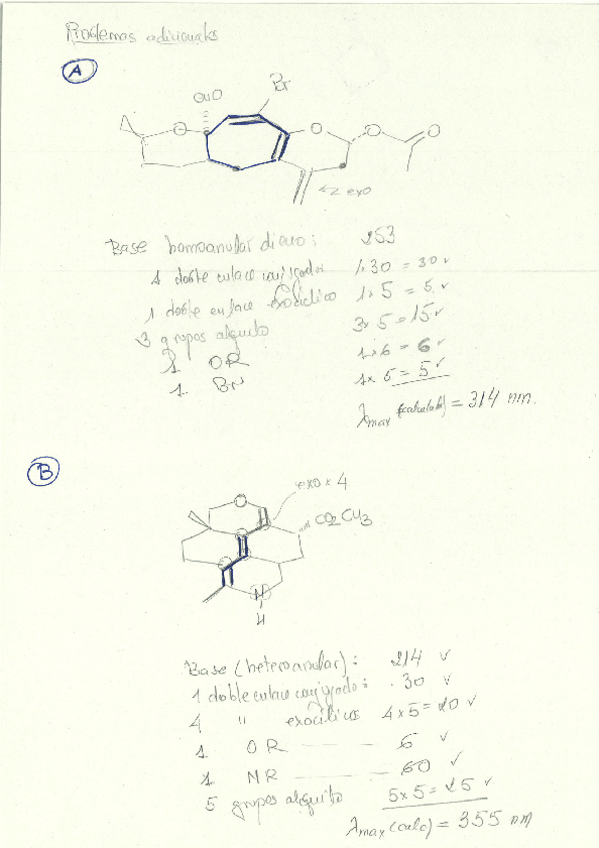 Problemas adicionales
A
OHO
Br
O
O
O
O
exo
Base homoanular dieno: 253
1 doble enlace conjugado 1×30 = 30 ✓
1 doble enlace exocíclico 1×5 = 5 ✓
3 grupos alquilo 3×5 = 15 ✓
1 OR 1×6 = 6 ✓
1 Br 1×5 = 5 ✓
λmax (calculada) = 314 nm.
B
exo × 4
O
CO2CH3
N
H
Base (heteroanular): 214 ✓
1 doble enlace conjugado: 30 ✓
4 " exocíclicos 4×5 = 20 ✓
1 OR 6 ✓
1 NR 60 ✓
5 grupos alquilo 5×5 = 25 ✓
λmax (calc) = 355 nm